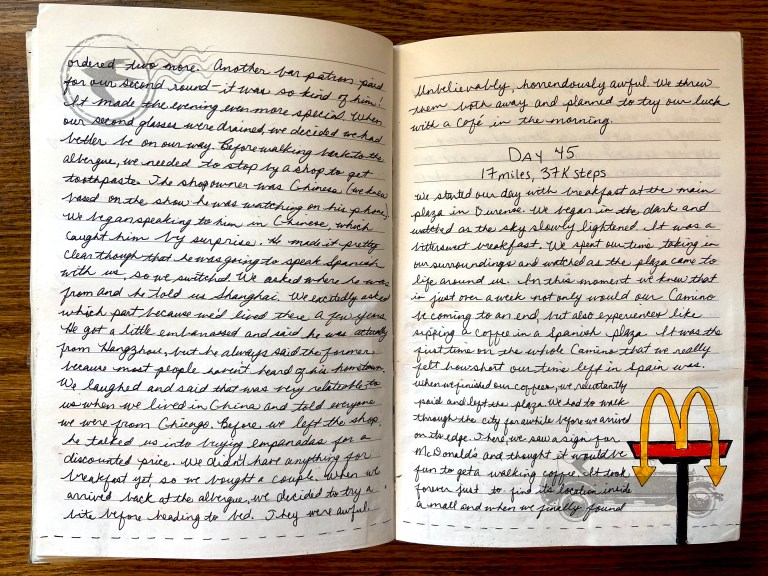 ordered two more. Another bar patron paid
for our second round - it was so kind of him!
It made the evening even more special. When
our second glasses were drained, we decided we had
better be on our way. Before walking back to the
albergue, we needed to stop by a shop to get
toothpaste. The shop owner was Chinese (we knew
based on the show he was watching on his phone).
We began speaking to him in Chinese, which
caught him by surprise. He made it pretty
clear though that he was going to speak Spanish
with us, so we switched. We asked where he was
from and he told us Shanghai. We excitedly asked
which part because we'd lived there a few years.
He got a little embarrassed and said he was actually
from Hangzhou, but he always said the former
because most people haven't heard of his hometown.
We laughed and said that was very relatable to
us when we lived in China and told everyone
we were from Chicago. Before we left the shop,
he talked us into buying empanadas for a
discounted price. We didn't have anything for
breakfast yet, so we bought a couple. When we
arrived back at the albergue, we decided to try a
bite before heading to bed. They were awful.
Unbelievably, horrendously awful. We threw
them both away and planned to try our luck
with a café in the morning.
DAY 45
17 miles, 37K steps
We started our day with breakfast at the main
plaza in Ourense. We began in the dark and
watched as the sky slowly lightened. It was a
bittersweet breakfast. We spent our time taking in
our surroundings and watched as the plaza came to
life around us. In this moment we knew that
in just over a week not only would our Camino
be coming to an end, but also experiences like
sipping a coffee in a Spanish plaza. It was the
first time on the whole Camino that we really
felt how short our time left in Spain was.
When we finished our coffees, we reluctantly
paid and left the plaza. We had to walk
through the city for awhile before we arrived
on its edge. There, we saw a sign for
McDonald's and thought it would be
fun to get a walking coffee. It took
forever just to find its location inside
a mall and when we finally found